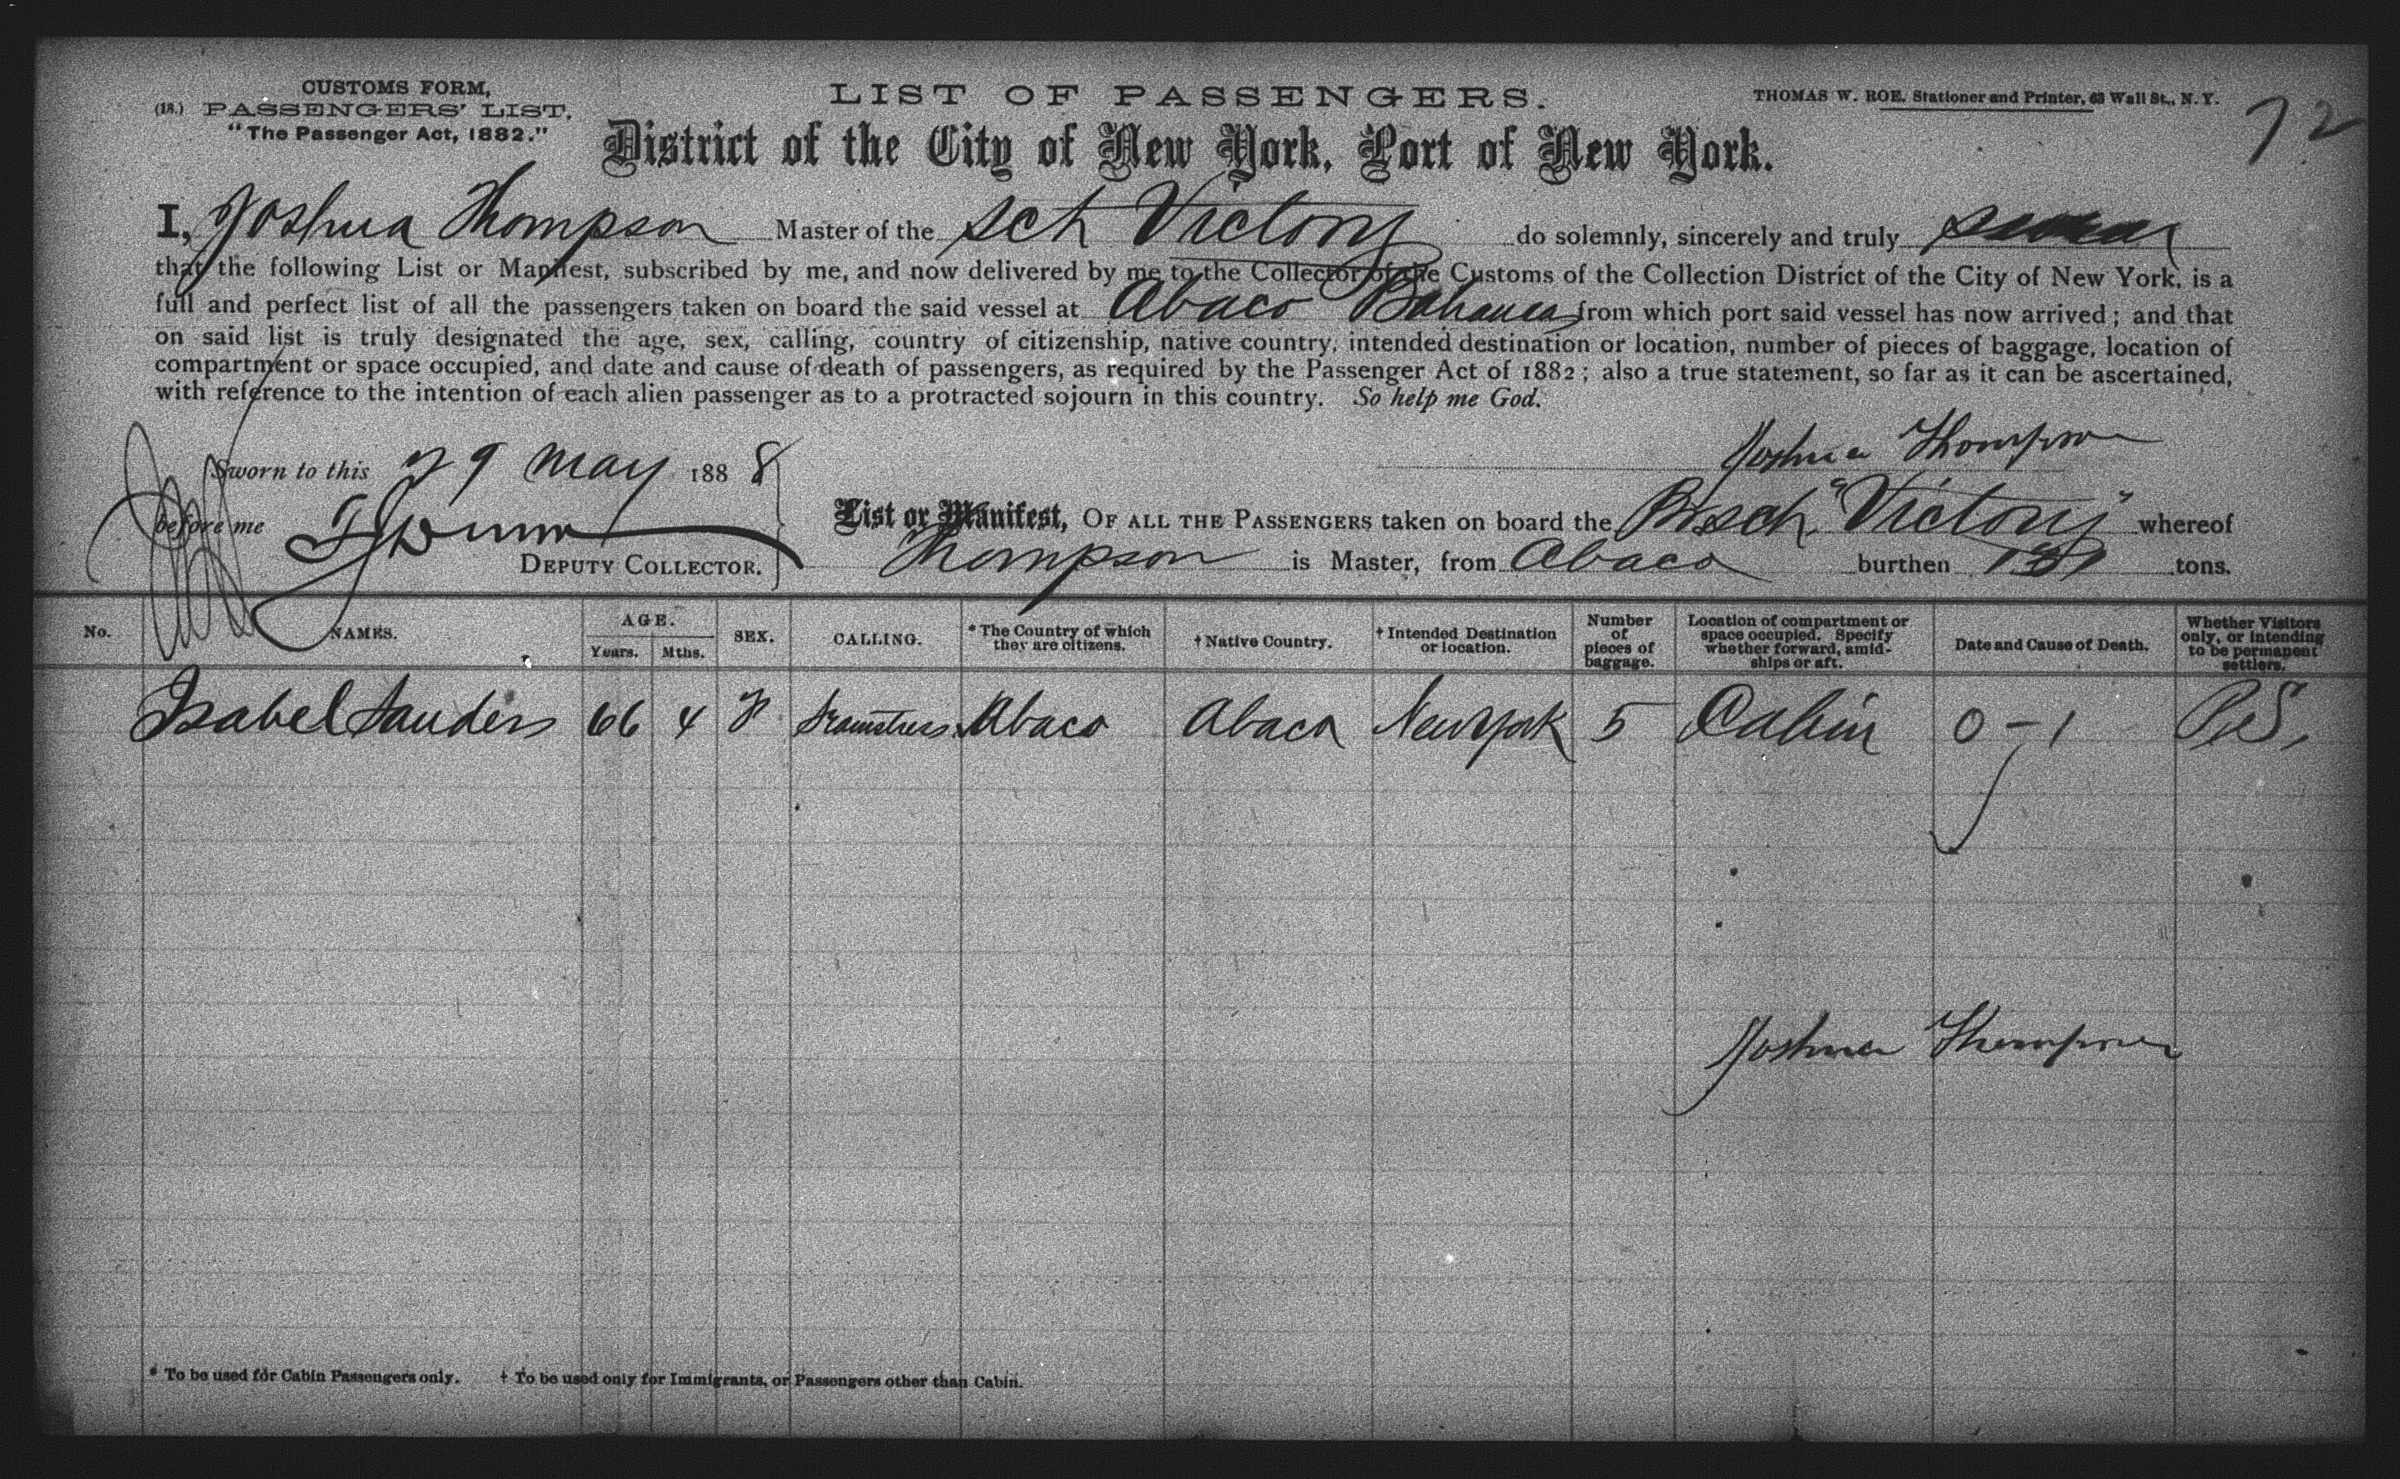 CUSTOMS FORM,
(18.) PASSENGERS' LIST,
"The Passenger Act, 1882."
LIST OF PASSENGERS.
THOMAS W. ROE, Stationer and Printer, 63 Wall St., N. Y.
72
District of the City of New York, Port of New York.
I, Joshua Thompson Master of the Sch Victory do solemnly, sincerely and truly swear
that the following List or Manifest, subscribed by me, and now delivered by me to the Collector of the Customs of the Collection District of the City of New York, is a
full and perfect list of all the passengers taken on board the said vessel at Abaco Bahamas from which port said vessel has now arrived; and that
on said list is truly designated the age, sex, calling, country of citizenship, native country, intended destination or location, number of pieces of baggage, location of
compartment or space occupied, and date and cause of death of passengers, as required by the Passenger Act of 1882; also a true statement, so far as it can be ascertained,
with reference to the intention of each alien passenger as to a protracted sojourn in this country. So help me God.
Joshua Thompson
Sworn to this 29 May 1888
before me
DEPUTY COLLECTOR.
List or Manifest, OF ALL THE PASSENGERS taken on board the Br Sch "Victory" whereof
Thompson is Master, from Abaco burthen tons.
No. NAMES. AGE. Years. Mths. SEX. CALLING. * The Country of which they are citizens. † Native Country. † Intended Destination or location. Number of pieces of baggage. Location of compartment or space occupied. Specify whether forward, amidships or aft. Date and Cause of Death. Whether Visitors only, or intending to be permanent settlers.
Isabel Sanders 66 4 F Seamstress Abaco Abaco New York 5 Cabin 0-1 P.S.
Joshua Thompson
* To be used for Cabin Passengers only. † To be used only for Immigrants, or Passengers other than Cabin.